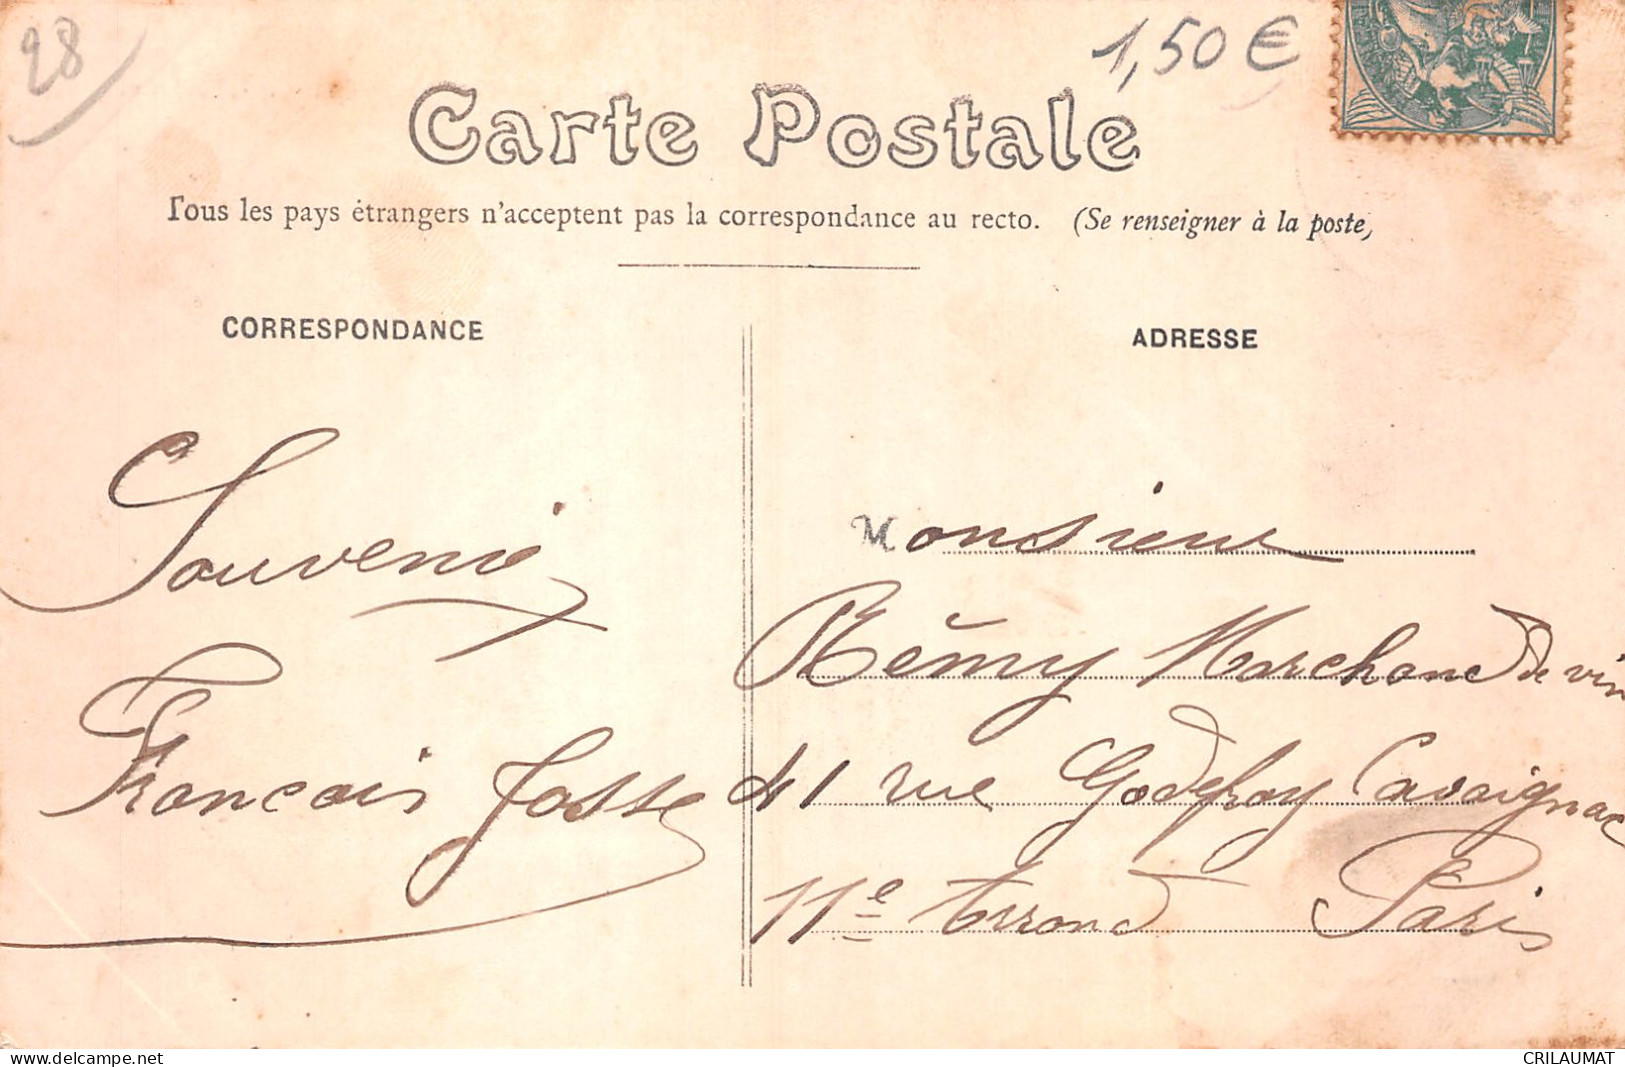 28
1,50 €
Carte Postale
Tous les pays étrangers n'acceptent pas la correspondance au recto. (Se renseigner à la poste)
CORRESPONDANCE
ADRESSE
Souvenir
François Josse
Monsieur
Rémy Marchand de vin
41 rue Godefroy Cavaignac
11e Arrond Paris
www.delcampe.net
CRILAUMAT